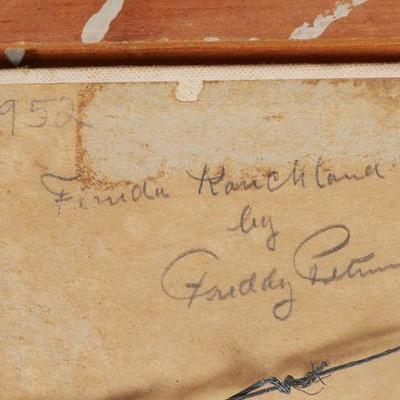 952
Florida Ranchland
by
Freddy